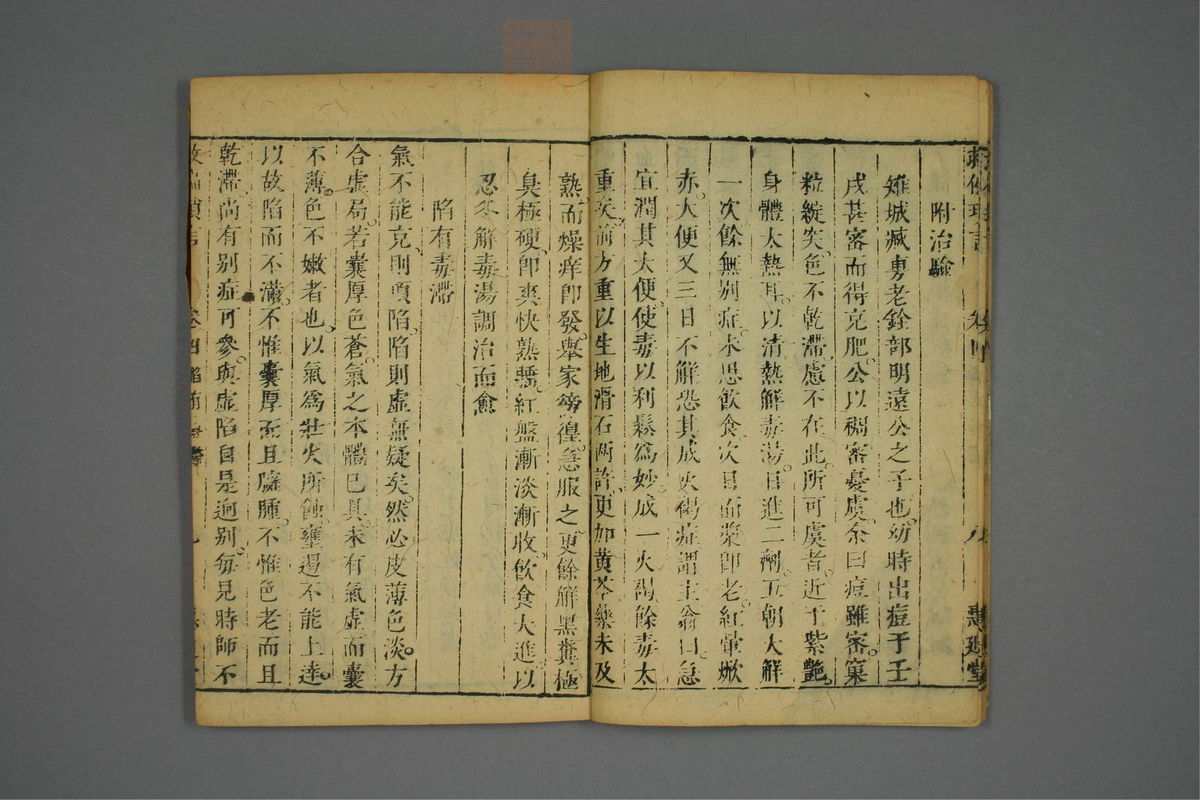 附治驗
雉城臧勇老銓部明遠公之子也幼時出痘于壬
戌甚審而得克肥公以稠審憂虞余曰痘雖審窠
粒綻突色不乾滯慮不在此所可虞者近于紫艷
身體太熱耳以清熱解毒湯日進二劑五朝大解
一次餘無别症未思飲食次日面漿即老紅暈焮
赤大便又三日不解恐其成火褐症謂主翁曰急
宜潤其大便使毒以利鬆為妙成一火褐餘毒太
重矣前方重以生地滑石两許更加黄芩藥未及
熟而燥痒即發舉家徬徨急服之更餘觧黑糞極
臭極硬即爽快熟睡紅盤漸淡漸收飲食大進以
忍冬解毒湯調治而愈
陷有毒滯
氣不能克則頂陷陷則虚無疑矣然必皮薄色淡方
合虚局若囊厚色蒼氣之本體已具未有氣虚而囊
不薄色不嫩者也以氣為壯火所蝕壅遏不能上逹
以故陷而不漲不惟囊厚而且隆腫不惟色老而且
乾滯尚有别症可參與虚陷自是逈别每見時師不